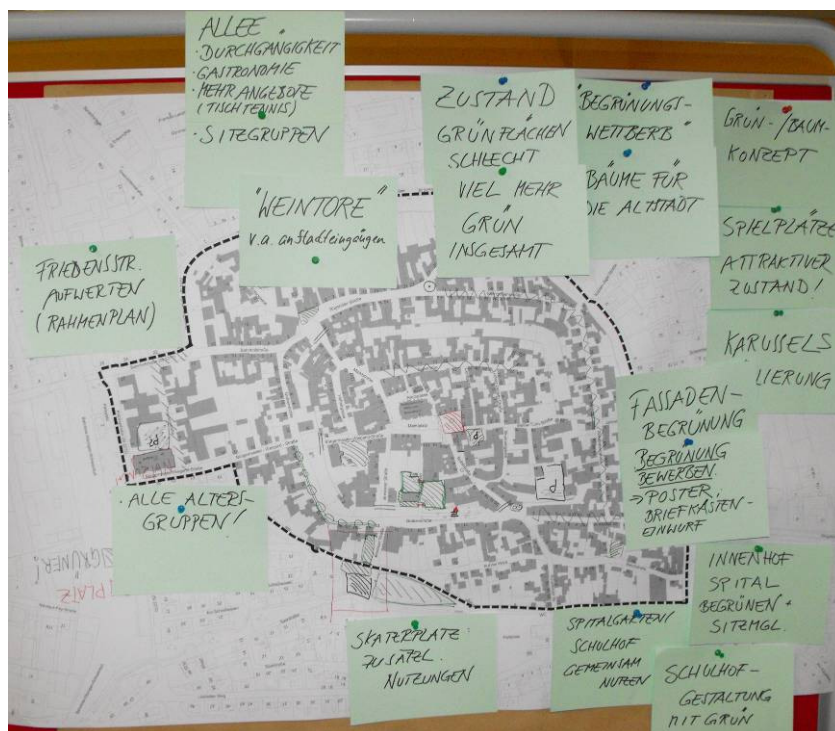 ALLEE
· DURCHGÄNGIGKEIT
· GASTRONOMIE
· MEHR ANGEBOTE
(TISCHTENNIS)
· SITZGRUPPEN
ZUSTAND
GRÜNFLÄCHEN
SCHLECHT
"BEGRÜNUNGS-
WETTBERB"
GRÜN-/BAUM-
KONZEPT
"WEINTORE"
v.a. an Stadteingängen
VIEL MEHR
GRÜN
INSGESAMT
BÄUME FÜR
DIE ALTSTADT
SPIELPLÄTZE
ATTRAKTIVER
ZUSTAND!
FRIEDENSSTR.
AUFWERTEN
(RAHMENPLAN)
KARUSSELS
LIERUNG
FASSADEN-
BEGRÜNUNG
BEGRÜNUNG
BEWERBEN
→ POSTER,
BRIEFKÄSTEN-
EINWURF
· ALLE ALTERS-
GRUPPEN!
PLATZ
GRÜNER!
INNENHOF
SPITAL
BEGRÜNEN +
SITZMGL.
SKATERPLATZ:
ZUSÄTZL.
NUTZUNGEN
SPITALGARTEN/
SCHULHOF
GEMEINSAM
NUTZEN
SCHULHOF-
GESTALTUNG
MIT GRÜN
P
P
P